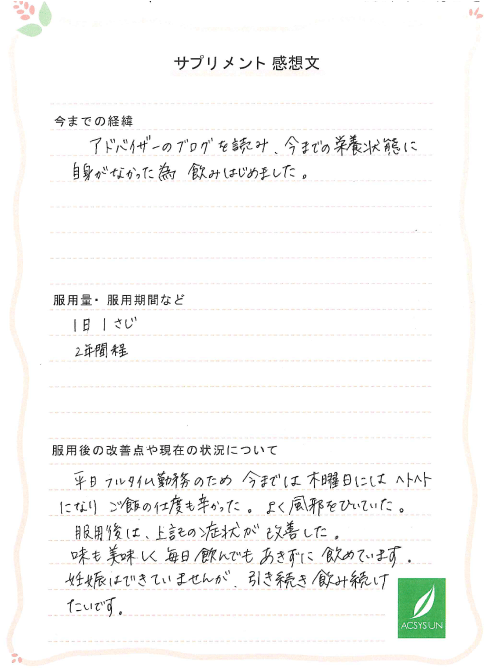 サプリメント 感想文
今までの経緯
アドバイザーのブログを読み、今までの栄養状態に
自身がなかった為 飲みはじめました。
服用量・服用期間など
1日 1さじ
2年間程
服用後の改善点や現在の状況について
平日フルタイム勤務のため 今までは 木曜日には ヘトヘト
になり ご飯の仕度も辛かった。よく風邪をひいていた。
服用後は、上記の症状が改善した。
味も美味しく 毎日飲んでも あきずに 飲めています。
妊娠はできていませんが、引き続き 飲み続け
たいです。
ACSYSUN